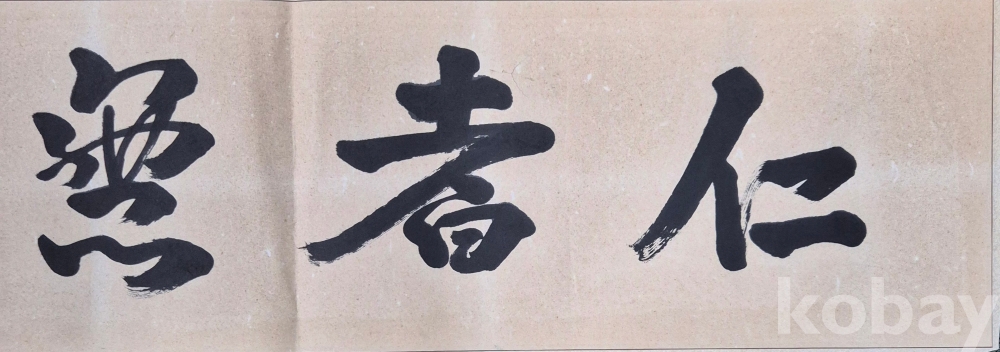 仁者無
kobay